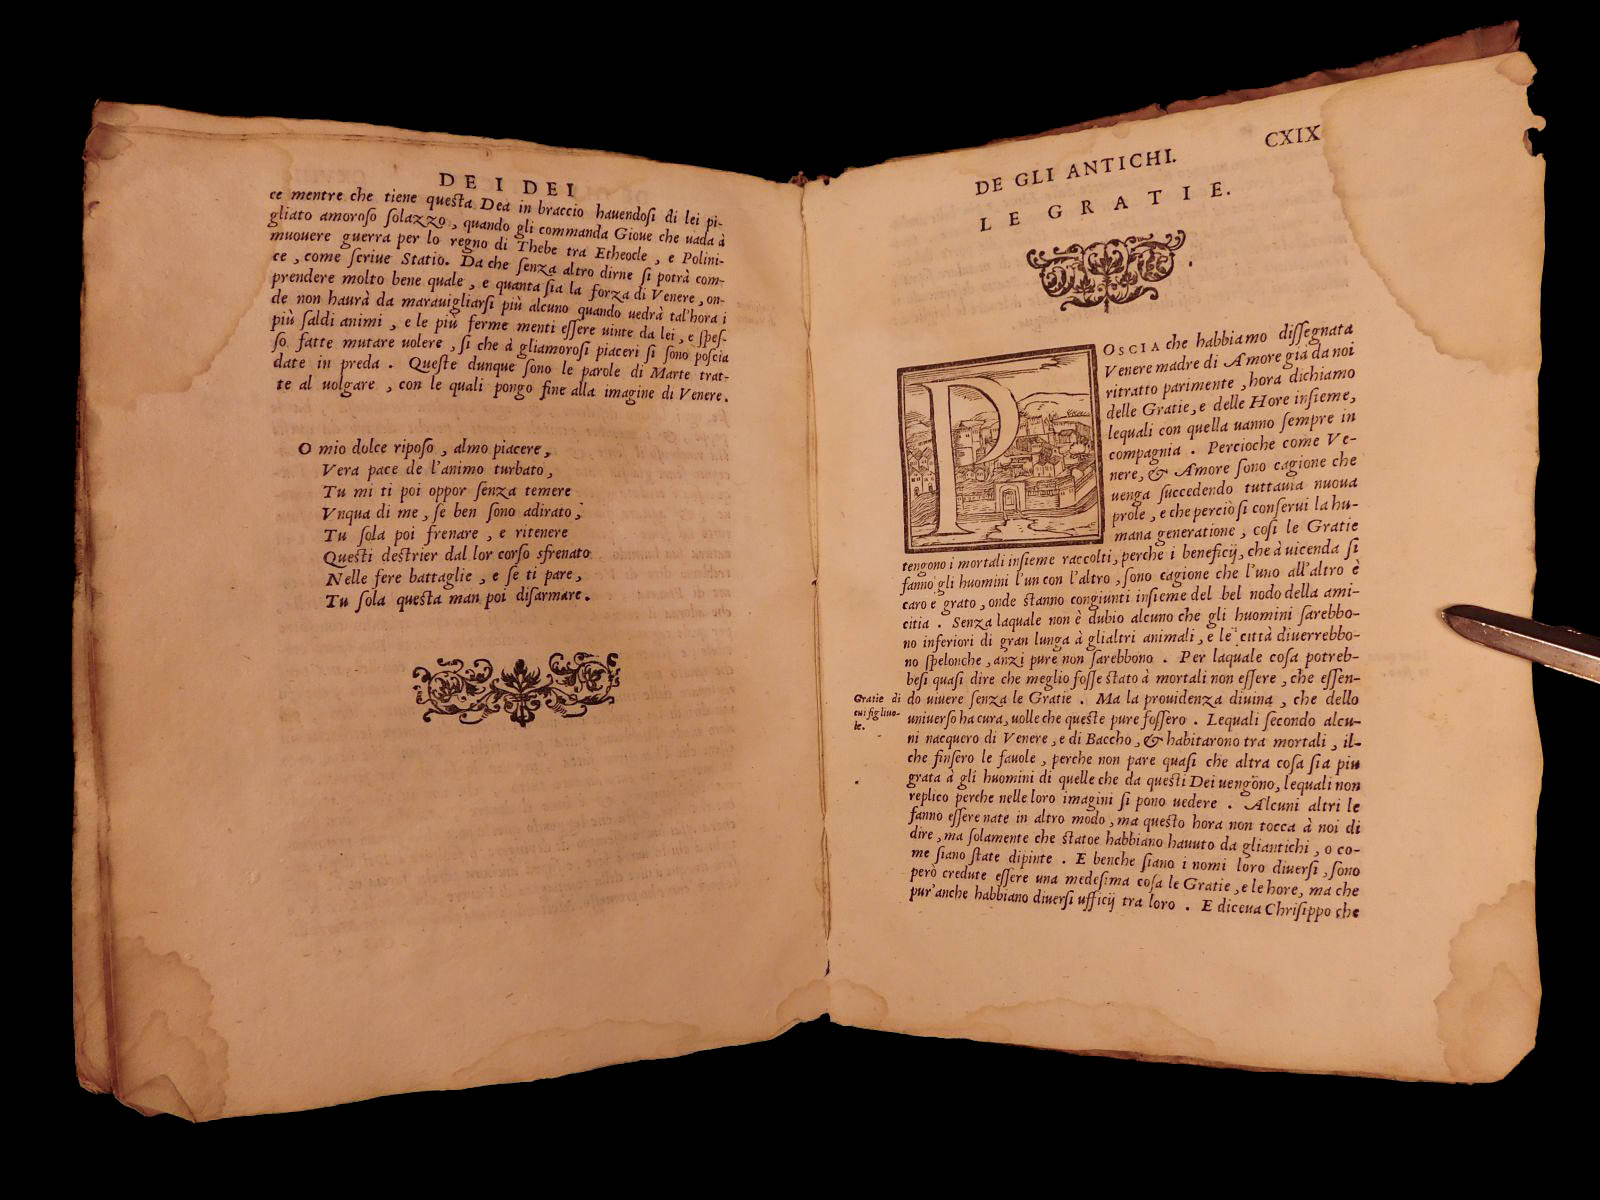 DE I DEI
ce mentre che tiene questa Dea in braccio hauendosi di lei pi-
gliato amoroso solazzo, quando gli commanda Gioue che uada à
muouere guerra per lo regno di Thebe tra Etheocle, e Polini-
ce, come scriue Statio. Da che senza altro dirne si potrà com-
prendere molto bene quale, e quanta sia la forza di Venere, on-
de non haurà da marauigliarsi più alcuno quando uedrà tal'hora i
più saldi animi, e le più ferme menti essere uinte da lei, e spes-
so fatte mutare uolere, si che à gliamorosi piaceri si sono poscia
date in preda. Queste dunque sono le parole di Marte trat-
te al uolgare, con le quali pongo fine alla imagine di Venere.
O mio dolce riposo, almo piacere,
Vera pace de l'animo turbato,
Tu mi ti poi oppor senza temere
Vnqua di me, se ben sono adirato;
Tu sola poi frenare, e ritenere
Questi destrier dal lor corso sfrenato
Nelle fere battaglie, e se ti pare,
Tu sola questa man poi disarmare.
DE GLI ANTICHI. CXIX
LE GRATIE.
POSCIA che habbiamo dissegnata
Venere madre di Amore gia da noi
ritratto parimente, hora dichiamo
delle Gratie, e delle Hore insieme,
lequali con quella uanno sempre in
compagnia. Percioche come Ve-
nere, & Amore sono cagione che
uenga succedendo tuttauia nuoua
prole, e che perciò si conserui la hu-
mana generatione, cosi le Gratie
tengono i mortali insieme raccolti, perche i beneficij, che à uicenda si
fanno gli huomini l'un con l'altro, sono cagione che l'uno all'altro è
caro e grato, onde stanno congiunti insieme del bel nodo della ami-
citia. Senza laquale non è dubio alcuno che gli huomini sarebbo-
no inferiori di gran lunga à glialtri animali, e le città diuerrebbo-
no spelonche, anzi pure non sarebbono. Per laquale cosa potreb-
besi quasi dire che meglio fosse stato à mortali non essere, che essen-
do uiuere senza le Gratie. Ma la prouidenza diuina, che dello
uniuerso ha cura, uolle che queste pure fossero. Lequali secondo alcu-
ni nacquero di Venere, e di Baccho, & habitarono tra mortali, il-
che finsero le fauole, perche non pare quasi che altra cosa sia piu
grata à gli huomini di quelle che da questi Dei uengono, lequali non
replico perche nelle loro imagini si pono uedere. Alcuni altri le
fanno essere nate in altro modo, ma questo hora non tocca à noi di
dire, ma solamente che statoe habbiano hauuto da gliantichi, o co-
me siano state dipinte. E benche siano i nomi loro diuersi, sono
però credute essere una medesima cosa le Gratie, e le hore, ma che
pur'anche habbiano diuersi ufficij tra loro. E diceua Chrisippo che
Gratie di
cui figliuo-
le.